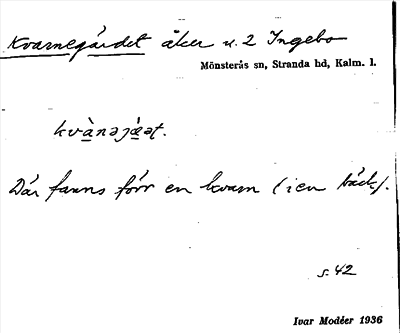 Kvarnegärdet åker n. 2 Ingebo
Mönsterås sn, Stranda hd, Kalm. l.
kvànəjæ̀əṭ.
Där fanns förr en kvarn (i en bäck).
s. 42
Ivar Modéer 1936